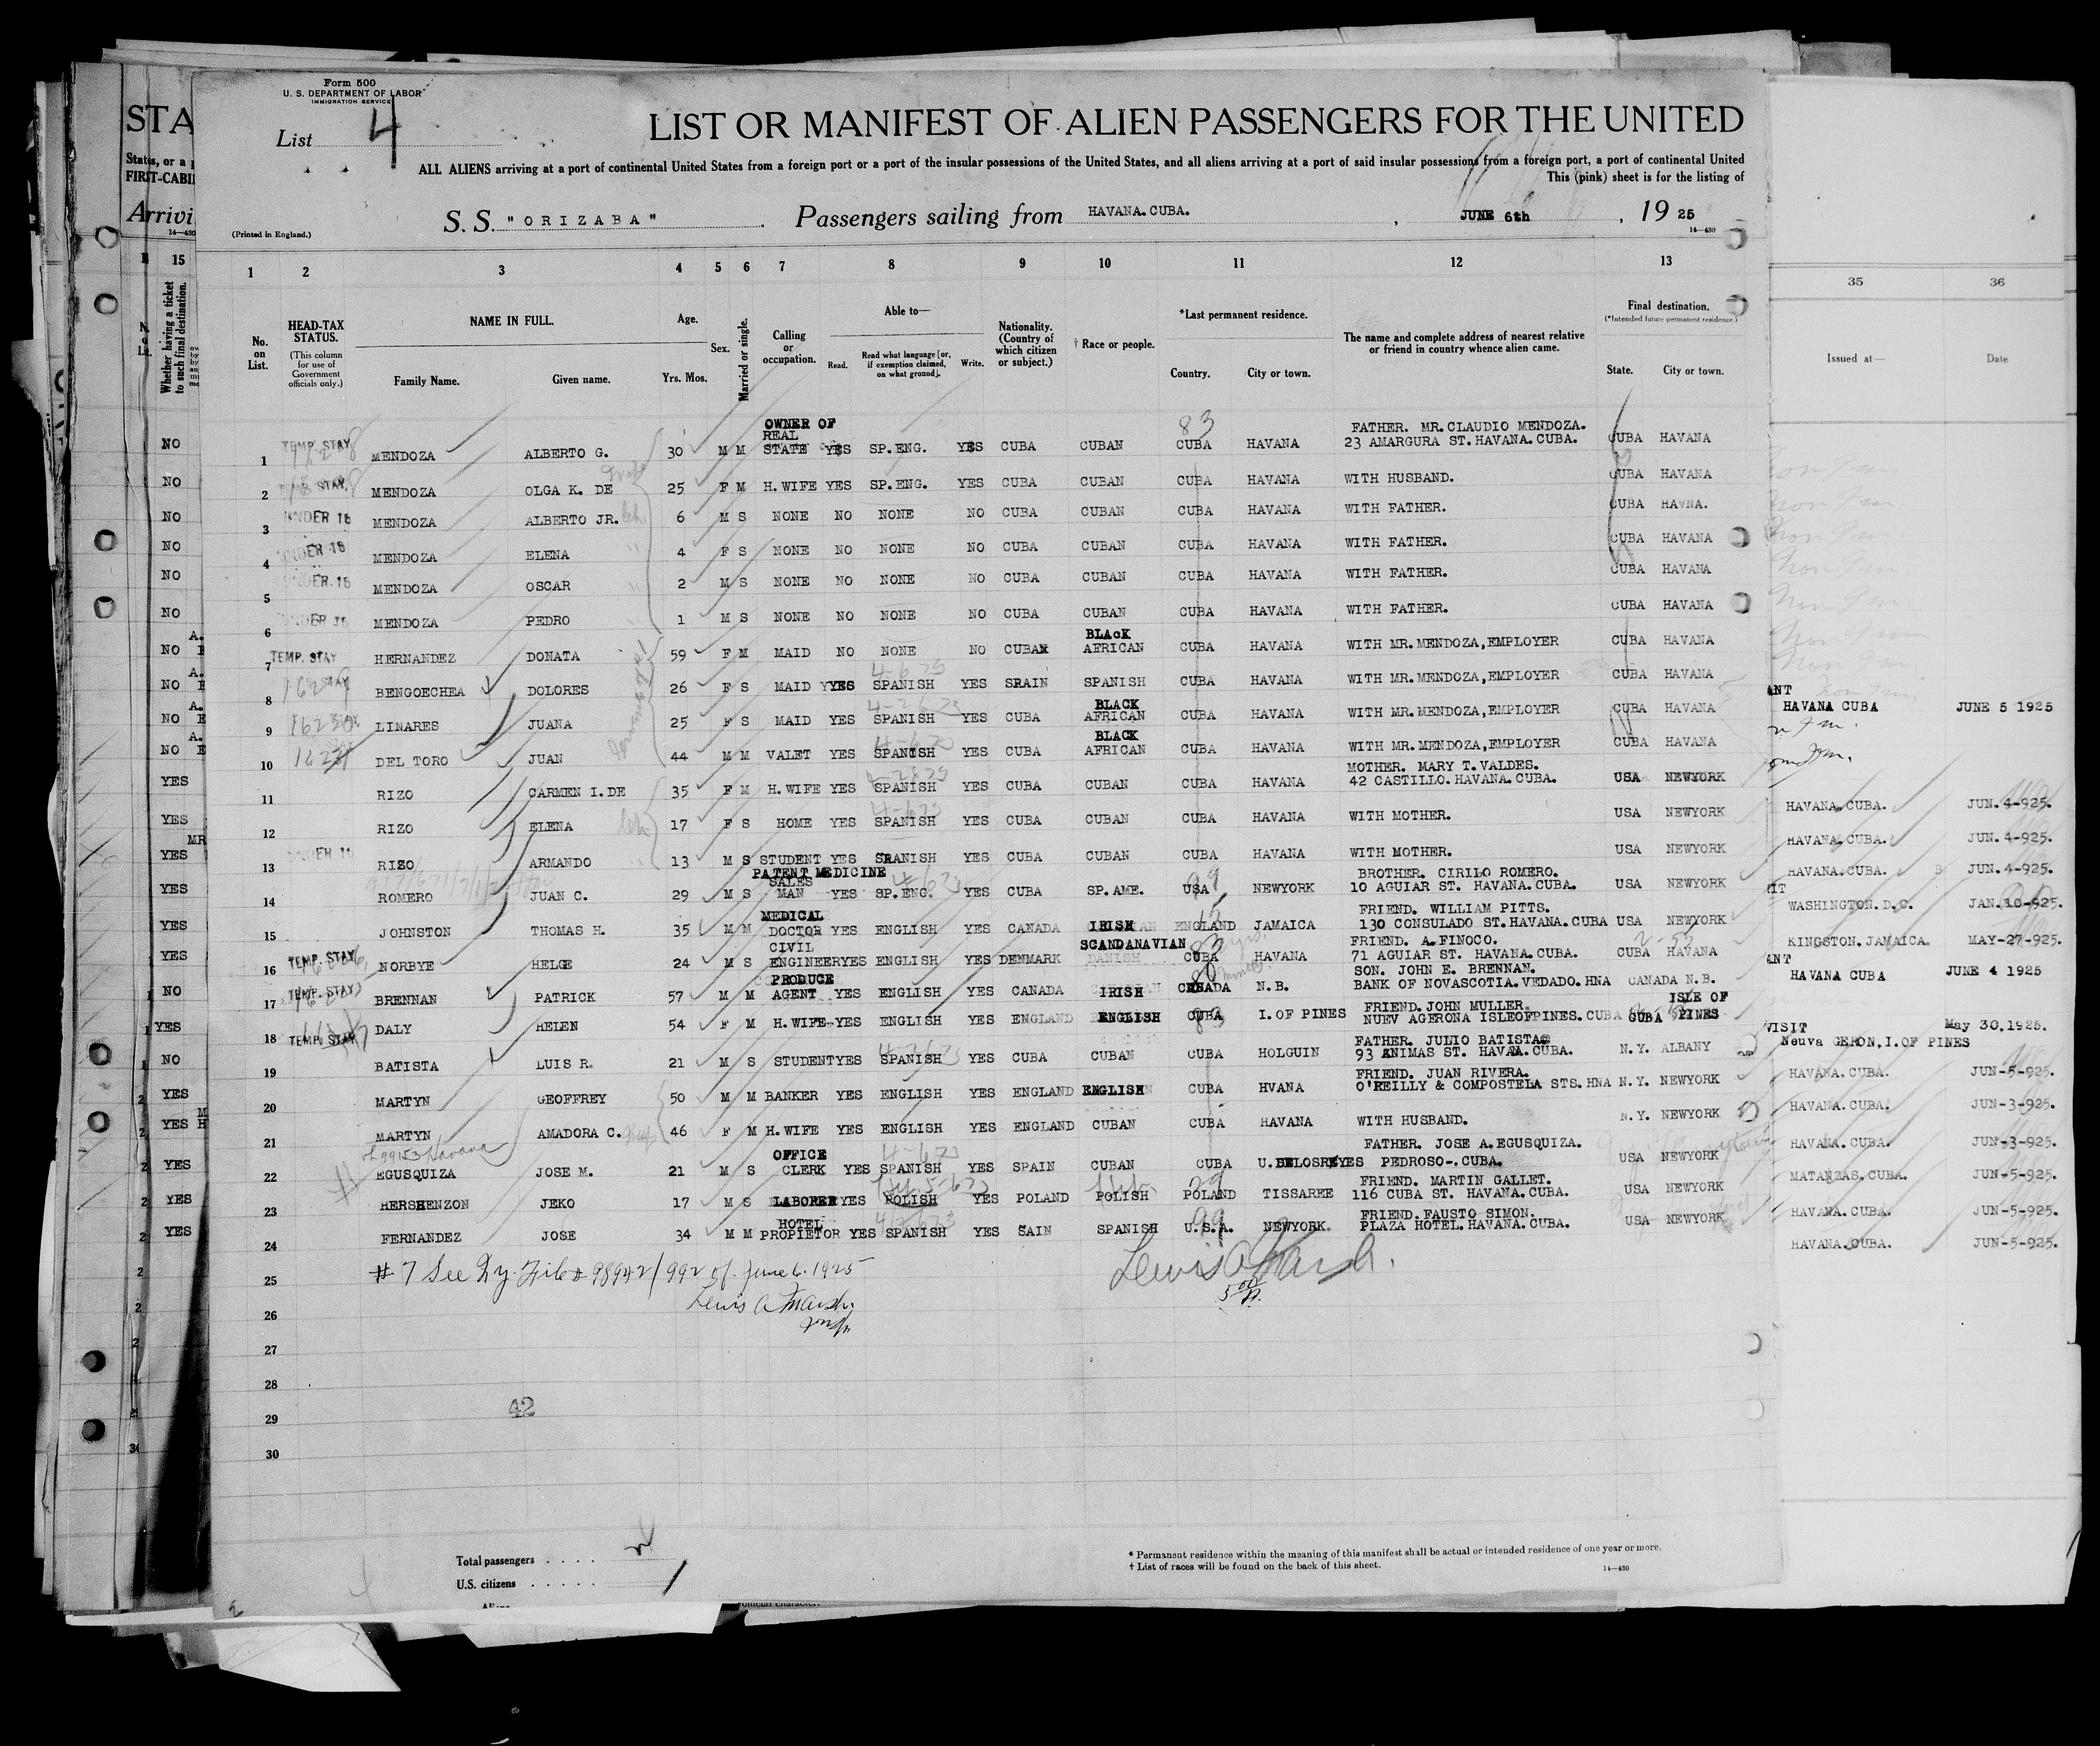 Form 500
U. S. DEPARTMENT OF LABOR
IMMIGRATION SERVICE
STA
List 4
LIST OR MANIFEST OF ALIEN PASSENGERS FOR THE UNITED
States, or a
FIRST-CABI
ALL ALIENS arriving at a port of continental United States from a foreign port or a port of the insular possessions of the United States, and all aliens arriving at a port of said insular possessions from a foreign port, a port of continental United
This (pink) sheet is for the listing of
Arrivi
S. S. "ORIZABA" Passengers sailing from HAVANA.CUBA. , JUNE 6th , 19 25
(Printed in England.)
14—430
15 1 2 3 4 5 6 7 8 9 10 11 12 13 35 36
Whether having a ticket to such final destination.
No. on List.
HEAD-TAX STATUS.
(This column for use of Government officials only.)
NAME IN FULL.
Family Name. Given name.
Age.
Yrs. Mos.
Sex.
Married or single.
Calling or occupation.
Able to—
Read. Read what language [or, if exemption claimed, on what ground]. Write.
Nationality. (Country of which citizen or subject.)
† Race or people.
*Last permanent residence.
Country. City or town.
The name and complete address of nearest relative or friend in country whence alien came.
Final destination.
(*Intended future permanent residence.)
State. City or town.
Issued at— Date
OWNER OF
REAL FATHER. MR. CLAUDIO MENDOZA.
NO 1 TEMP. STAY MENDOZA ALBERTO G. 30 M M STATE YES SP.ENG. YES CUBA CUBAN CUBA HAVANA 23 AMARGURA ST.HAVANA.CUBA. CUBA HAVANA
NO 2 STAY. MENDOZA OLGA K. DE 25 F M H.WIFE YES SP.ENG. YES CUBA CUBAN CUBA HAVANA WITH HUSBAND. CUBA HAVANA
NO 3 UNDER 16 MENDOZA ALBERTO JR. 6 M S NONE NO NONE NO CUBA CUBAN CUBA HAVANA WITH FATHER. CUBA HAVNA.
NO 4 UNDER 16 MENDOZA ELENA 4 F S NONE NO NONE NO CUBA CUBAN CUBA HAVANA WITH FATHER. CUBA HAVANA
NO 5 UNDER 16 MENDOZA OSCAR 2 M S NONE NO NONE NO CUBA CUBAN CUBA HAVANA WITH FATHER. CUBA HAVANA
NO 6 UNDER 16 MENDOZA PEDRO 1 M S NONE NO NONE NO CUBA CUBAN CUBA HAVANA WITH FATHER. CUBA HAVANA
BLACK
NO 7 TEMP. STAY HERNANDEZ DONATA 59 F M MAID NO NONE NO CUBAN AFRICAN CUBA HAVANA WITH MR.MENDOZA,EMPLOYER CUBA HAVANA
NO 8 STAY BENGOECHEA DOLORES 26 F S MAID YYES SPANISH YES SPAIN SPANISH CUBA HAVANA WITH MR.MENDOZA,EMPLOYER CUBA HAVANA
BLACK
NO 9 LINARES JUANA 25 F S MAID YES SPANISH YES CUBA AFRICAN CUBA HAVANA WITH MR.MENDOZA,EMPLOYER CUBA HAVANA HAVANA CUBA JUNE 5 1925
BLACK
NO 10 DEL TORO JUAN 44 M M VALET YES SPANISH YES CUBA AFRICAN CUBA HAVANA WITH MR.MENDOZA,EMPLOYER CUBA HAVANA
MOTHER. MARY T.VALDES.
YES 11 RIZO CARMEN I.DE 35 F M H.WIFE YES SPANISH YES CUBA CUBAN CUBA HAVANA 42 CASTILLO.HAVANA.CUBA. USA NEWYORK HAVANA.CUBA. JUN.4-925.
YES 12 RIZO ELENA 17 F S HOME YES SPANISH YES CUBA CUBAN CUBA HAVANA WITH MOTHER. USA NEWYORK HAVANA.CUBA. JUN.4-925.
YES 13 UNDER 16 RIZO ARMANDO 13 M S STUDENT YES SPANISH YES CUBA CUBAN CUBA HAVANA WITH MOTHER. USA NEWYORK HAVANA.CUBA. JUN.4-925.
PATENT MEDICINE
SALES BROTHER. CIRILO ROMERO.
YES 14 ROMERO JUAN C. 29 M S MAN YES SP.ENG. YES CUBA SP.AME. USA NEWYORK 10 AGUIAR ST. HAVANA.CUBA. USA NEWYORK WASHINGTON.D.C. JAN.10-925.
MEDICAL FRIEND. WILLIAM PITTS.
YES 15 JOHNSTON THOMAS H. 35 M M DOCTOR YES ENGLISH YES CANADA IRISH ENGLAND JAMAICA 130 CONSULADO ST.HAVANA.CUBA USA NEWYORK KINGSTON.JAMAICA. MAY-27-925.
CIVIL SCANDANAVIAN FRIEND. A.FINOCO.
YES 16 TEMP. STAY NORBYE HELGE 24 M S ENGINEER YES ENGLISH YES DENMARK DANISH CUBA HAVANA 71 AGUIAR ST. HAVANA.CUBA. CUBA HAVANA HAVANA CUBA JUNE 4 1925
PRODUCE SON. JOHN E. BRENNAN.
NO 17 TEMP. STAY BRENNAN PATRICK 57 M M AGENT YES ENGLISH YES CANADA IRISH CANADA N.B. BANK OF NOVASCOTIA.VEDADO.HNA CANADA N.B.
FRIEND.JOHN MULLER. ISLE OF
YES 18 TEMP. STAY DALY HELEN 54 F M H.WIFE YES ENGLISH YES ENGLAND ENGLISH CUBA I.OF PINES NUEV AGERONA ISLEOFPINES.CUBA CUBA PINES VISIT Neuva GERON,I.OF PINES May 30,1925.
FATHER. JULIO BATISTA
NO 19 BATISTA LUIS R. 21 M S STUDENT YES SPANISH YES CUBA CUBAN CUBA HOLGUIN 93 ANIMAS ST. HAVAA.CUBA. N.Y. ALBANY HAVANA.CUBA. JUN-5-925.
FRIEND. JUAN RIVERA.
YES 20 MARTYN GEOFFREY 50 M M BANKER YES ENGLISH YES ENGLAND ENGLISH CUBA HVANA O'REILLY & COMPOSTELA STS.HNA N.Y. NEWYORK HAVANA.CUBA. JUN-3-925.
YES 21 MARTYN AMADORA C. 46 F M H.WIFE YES ENGLISH YES ENGLAND CUBAN CUBA HAVANA WITH HUSBAND. N.Y. NEWYORK HAVANA.CUBA. JUN-3-925.
OFFICE FATHER. JOSE A.EGUSQUIZA.
YES 22 EGUSQUIZA JOSE M. 21 M S CLERK YES SPANISH YES SPAIN CUBAN CUBA U.DELOSREYES PEDROSO-.CUBA. USA NEWYORK MATANZAS.CUBA. JUN-5-925.
FRIEND. MARTIN GALLET.
YES 23 HERSHENZON JEKO 17 M S LABORER YES POLISH YES POLAND POLISH POLAND TISSAREE 116 CUBA ST. HAVANA.CUBA. USA NEWYORK HAVANA.CUBA. JUN-5-925.
HOTEL FRIEND.FAUSTO SIMON.
YES 24 FERNANDEZ JOSE 34 M M PROPIETOR YES SPANISH YES SAIN SPANISH U.S.A. NEWYORK. PLAZA HOTEL.HAVANA.CUBA. USA NEWYORK HAVANA.CUBA. JUN-5-925.
25 # 7 See Qy. File # 98942/992 of June 6. 1925
26 Lewis A Marsh.
27
28
29 42
30
Total passengers
U.S. citizens
* Permanent residence within the meaning of this manifest shall be actual or intended residence of one year or more.
† List of races will be found on the back of this sheet.
14—430